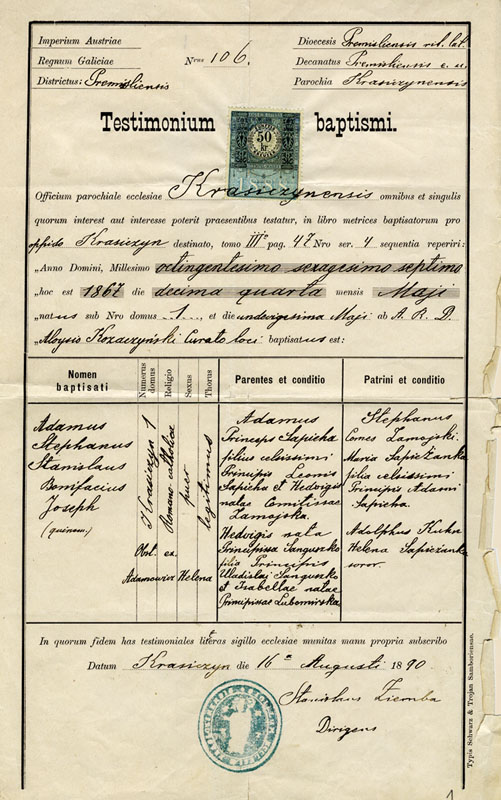 Imperium Austriae
Regnum Galiciae
Districtus: Premisliensis
Nrus 106.
Dioecesis Premisliensis rit. lat.
Decanatus Premisliensis
Parochia Krasiczynensis
Testimonium baptismi.
50
Officium parochiale ecclesiae Krasiczynensis omnibus et singulis
quorum interest aut interesse poterit praesentibus testatur, in libro metrices baptisatorum pro
oppido Krasiczyn destinato, tomo III° pag. 47 Nro ser. 4 sequentia reperiri:
„Anno Domini, Millesimo octingentesimo sexagesimo septimo
„hoc est 1867 die decima quarta mensis Maji
„natus sub Nro domus 1., et die undevigesima Maji ab A. R. D.
„Aloysio Kozaczyński Curato loci baptisatus est:
Nomen baptisati
Numerus domus
Religio
Sexus
Thorus
Parentes et conditio
Patrini et conditio
Adamus
Stephanus
Stanislaus
Bonifacius
Joseph
(quinom.)
Krasiczyn 1
Romano catholica
puer
legitimus
Obst. ex.
Adamowicz Helena
Adamus
Princeps Sapieha
filius celsissimi
Principis Leonis
Sapieha et Hedvigis
natae Comitissae
Zamojska.
Hedvigis nata
Principissa Sanguszko
filia Principis
Uladislai Sanguszko
et Isabellae natae
Principissae Lubomirska
Stephanus
Comes Zamojski.
Maria Sapieżanka
filia celsissimi
Principis Adami
Sapieha.
Adolphus Kuhn
Helena Sapieżanka
soror.
In quorum fidem has testimoniales literas sigillo ecclesiae munitas manu propria subscribo
Datum Krasiczyn die 16a Augusti 1890
Stanislaus Ziemba
Dirigens
Typis Schwarz & Trojan Samboriensne.
1